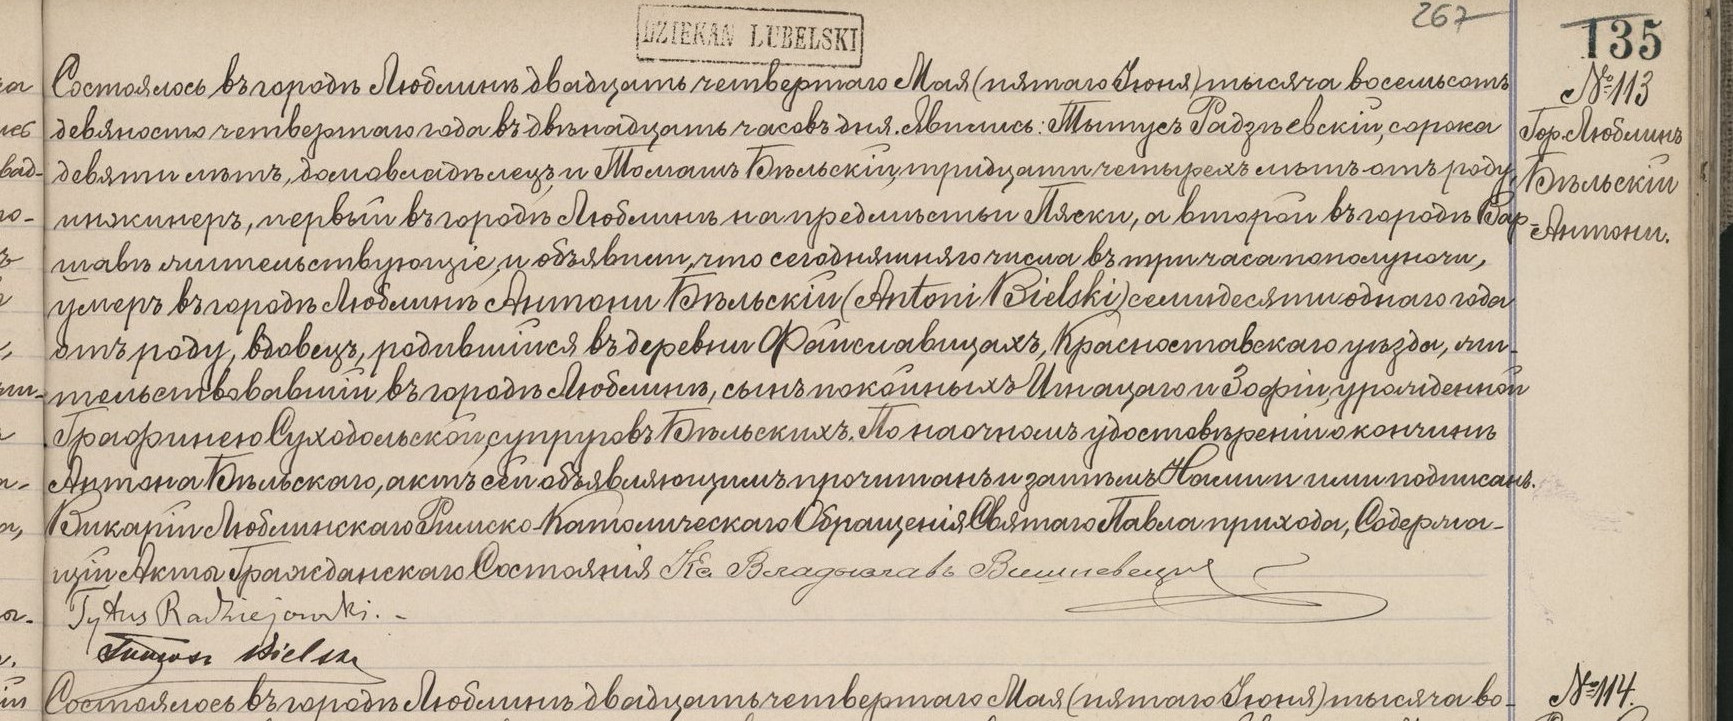 267
135
DZIEKAN LUBELSKI
№ 113
Гор. Люблинъ
Бѣльскій
Антони.
Состоялось въ городѣ Люблинѣ двадцать четвертаго Мая (пятаго Іюня) тысяча восемьсотъ
девяносто четвертаго года въ двѣнадцать часовъ дня. Явились: Тытусъ Радзѣевскій, сорока
девяти лѣтъ, домовладѣлецъ, и Томашъ Бѣльскій, тридцати четырехъ лѣтъ отъ роду,
инжинеръ, первый въ городѣ Люблинѣ на предмѣстьи Пяски, а второй въ городѣ Вар-
шавѣ жительствующіе, и объявили, что сегодняшняго числа въ три часа пополуночи,
умеръ въ городѣ Люблинѣ Антони Бѣльскій (Antoni Bielski) семидесяти однаго года
отъ роду, вдовецъ, родившійся въ деревни Файславицахъ, Красноставскаго уѣзда, жи-
тельствовавшій въ городѣ Люблинѣ, сынъ покойныхъ Игнацаго и Зофіи, урожденной
Графинею Суходольской, супруговъ Бѣльскихъ. По наочномъ удостовѣреніи о кончинѣ
Антона Бѣльскаго, актъ сей объявляющимъ прочитанъ и затѣмъ Нами и ими подписанъ.
Викарій Люблинскаго Римско-Католическаго Обращенія Святаго Павла прихода, Содержа-
щій Акты Гражданскаго Состоянія Кс. Владиславъ Вишневецкій
Tytus Radziejowski.-
Tomasz Bielski
№ 114.
Состоялось въ городѣ Люблинѣ двадцать четвертаго Мая (пятаго Іюня) тысяча во-